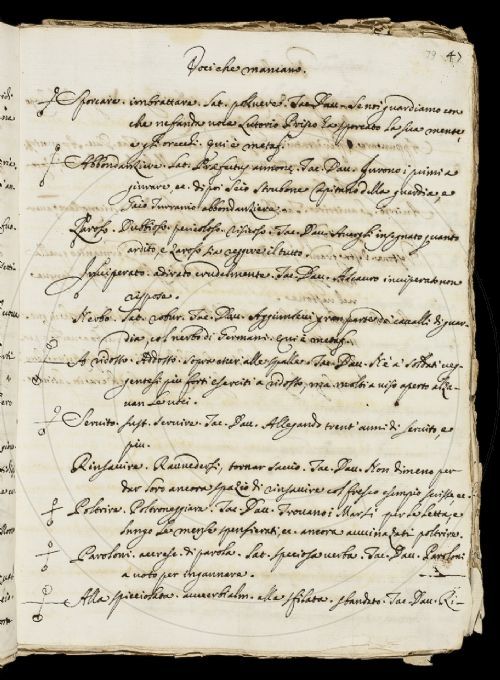 79 47
Voci che mancano.
Sporcare. imbrattare. Lat. polluere. Tac. Dav. Se noi guardiamo con
che nefanda voce Lutorio Prisco ha sporcato la sua mente,
e gli orecchi. qui è metaf.
Abbondanziere. Lat. Praefectus annonae. Tac. Dav. furono i primi a
giurare, ec. di poi Seio Strabone Capitano della guardia, e
Gaio Turranio abbondanziere.
Zaroso. Dubbioso. pericoloso. risicoso. Tac. Dav. insegnato quanto
ardito, e zaroso sia reggere il tutto.
Inviperato. adirato crudelmente. Tac. Dav. Adirato inviperato non
rispose.
Nerbo. Lat. robur. Tac. Dav. Aggiunsevi gran parte de cavalli di guar-
dia, col nerbo di Germani. qui è metaf.
A ridosso. Addosso. Sopra etc. alle spalle. Tac. Dav. Nè a' Soldati veg-
gentesi più forti eserciti a ridosso, ma molti a viso aperto
Servito. sust. Servire. Tac. Dav. Allegando trent'anni di servito, e
più.
Rinsavire. Ravvedersi, tornar savio. Tac. Dav. Non dimeno per
dar loro ancora spazio di rinsavire col fresco esempio scrisse ec.
Poltrire. Poltroneggiare. Tac. Dav. Trovano i Marsi per le letta, e
lungo le mense spensierati, ec. ancora avvinazzati poltrire.
Paroloni. accresc. di parola. Lat. speciosa verba. Tac. Dav. Paroloni
a voto per ingannare.
Alla spicciolata. avverbialm. alla sfilata. sbandato. Tac. Dav. Ri-